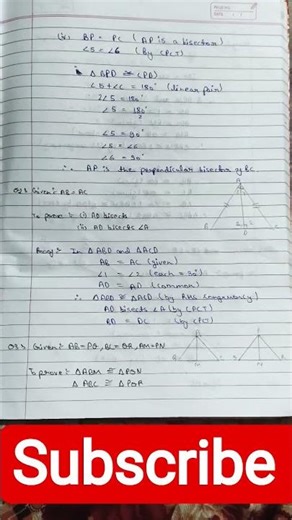 (iv) BP = PC (AP is a bisector)
∠5 = ∠6 (By CPCT)
∴ △BPD ≅ CPD)
∠5 + ∠6 = 180° (linear pair)
2∠5 = 180°
∠5 = 180°
2
∠5 = 90°
∠5 = ∠6
∠6 = 90°
∴ AP is the perpendicular bisector of BC.
Q2. Given:- AB = AC
To prove:- (i) AD bisects
(ii) AD bisects ∠A
Proof:- In △ABD and △ACD
AB = AC (given)
∠1 = ∠2 (each = 90°)
AD = AD (common)
∴ △ABD ≅ △ACD (by RHS congruency)
AD bisects ∠A (by CPCT)
BD = DC (by CPCT)
Q3. Given:- AB = PQ, BC = QR, AM = PN
To prove:- △ABM ≅ △PQN
△ABC ≅ △PQR
Subscribe